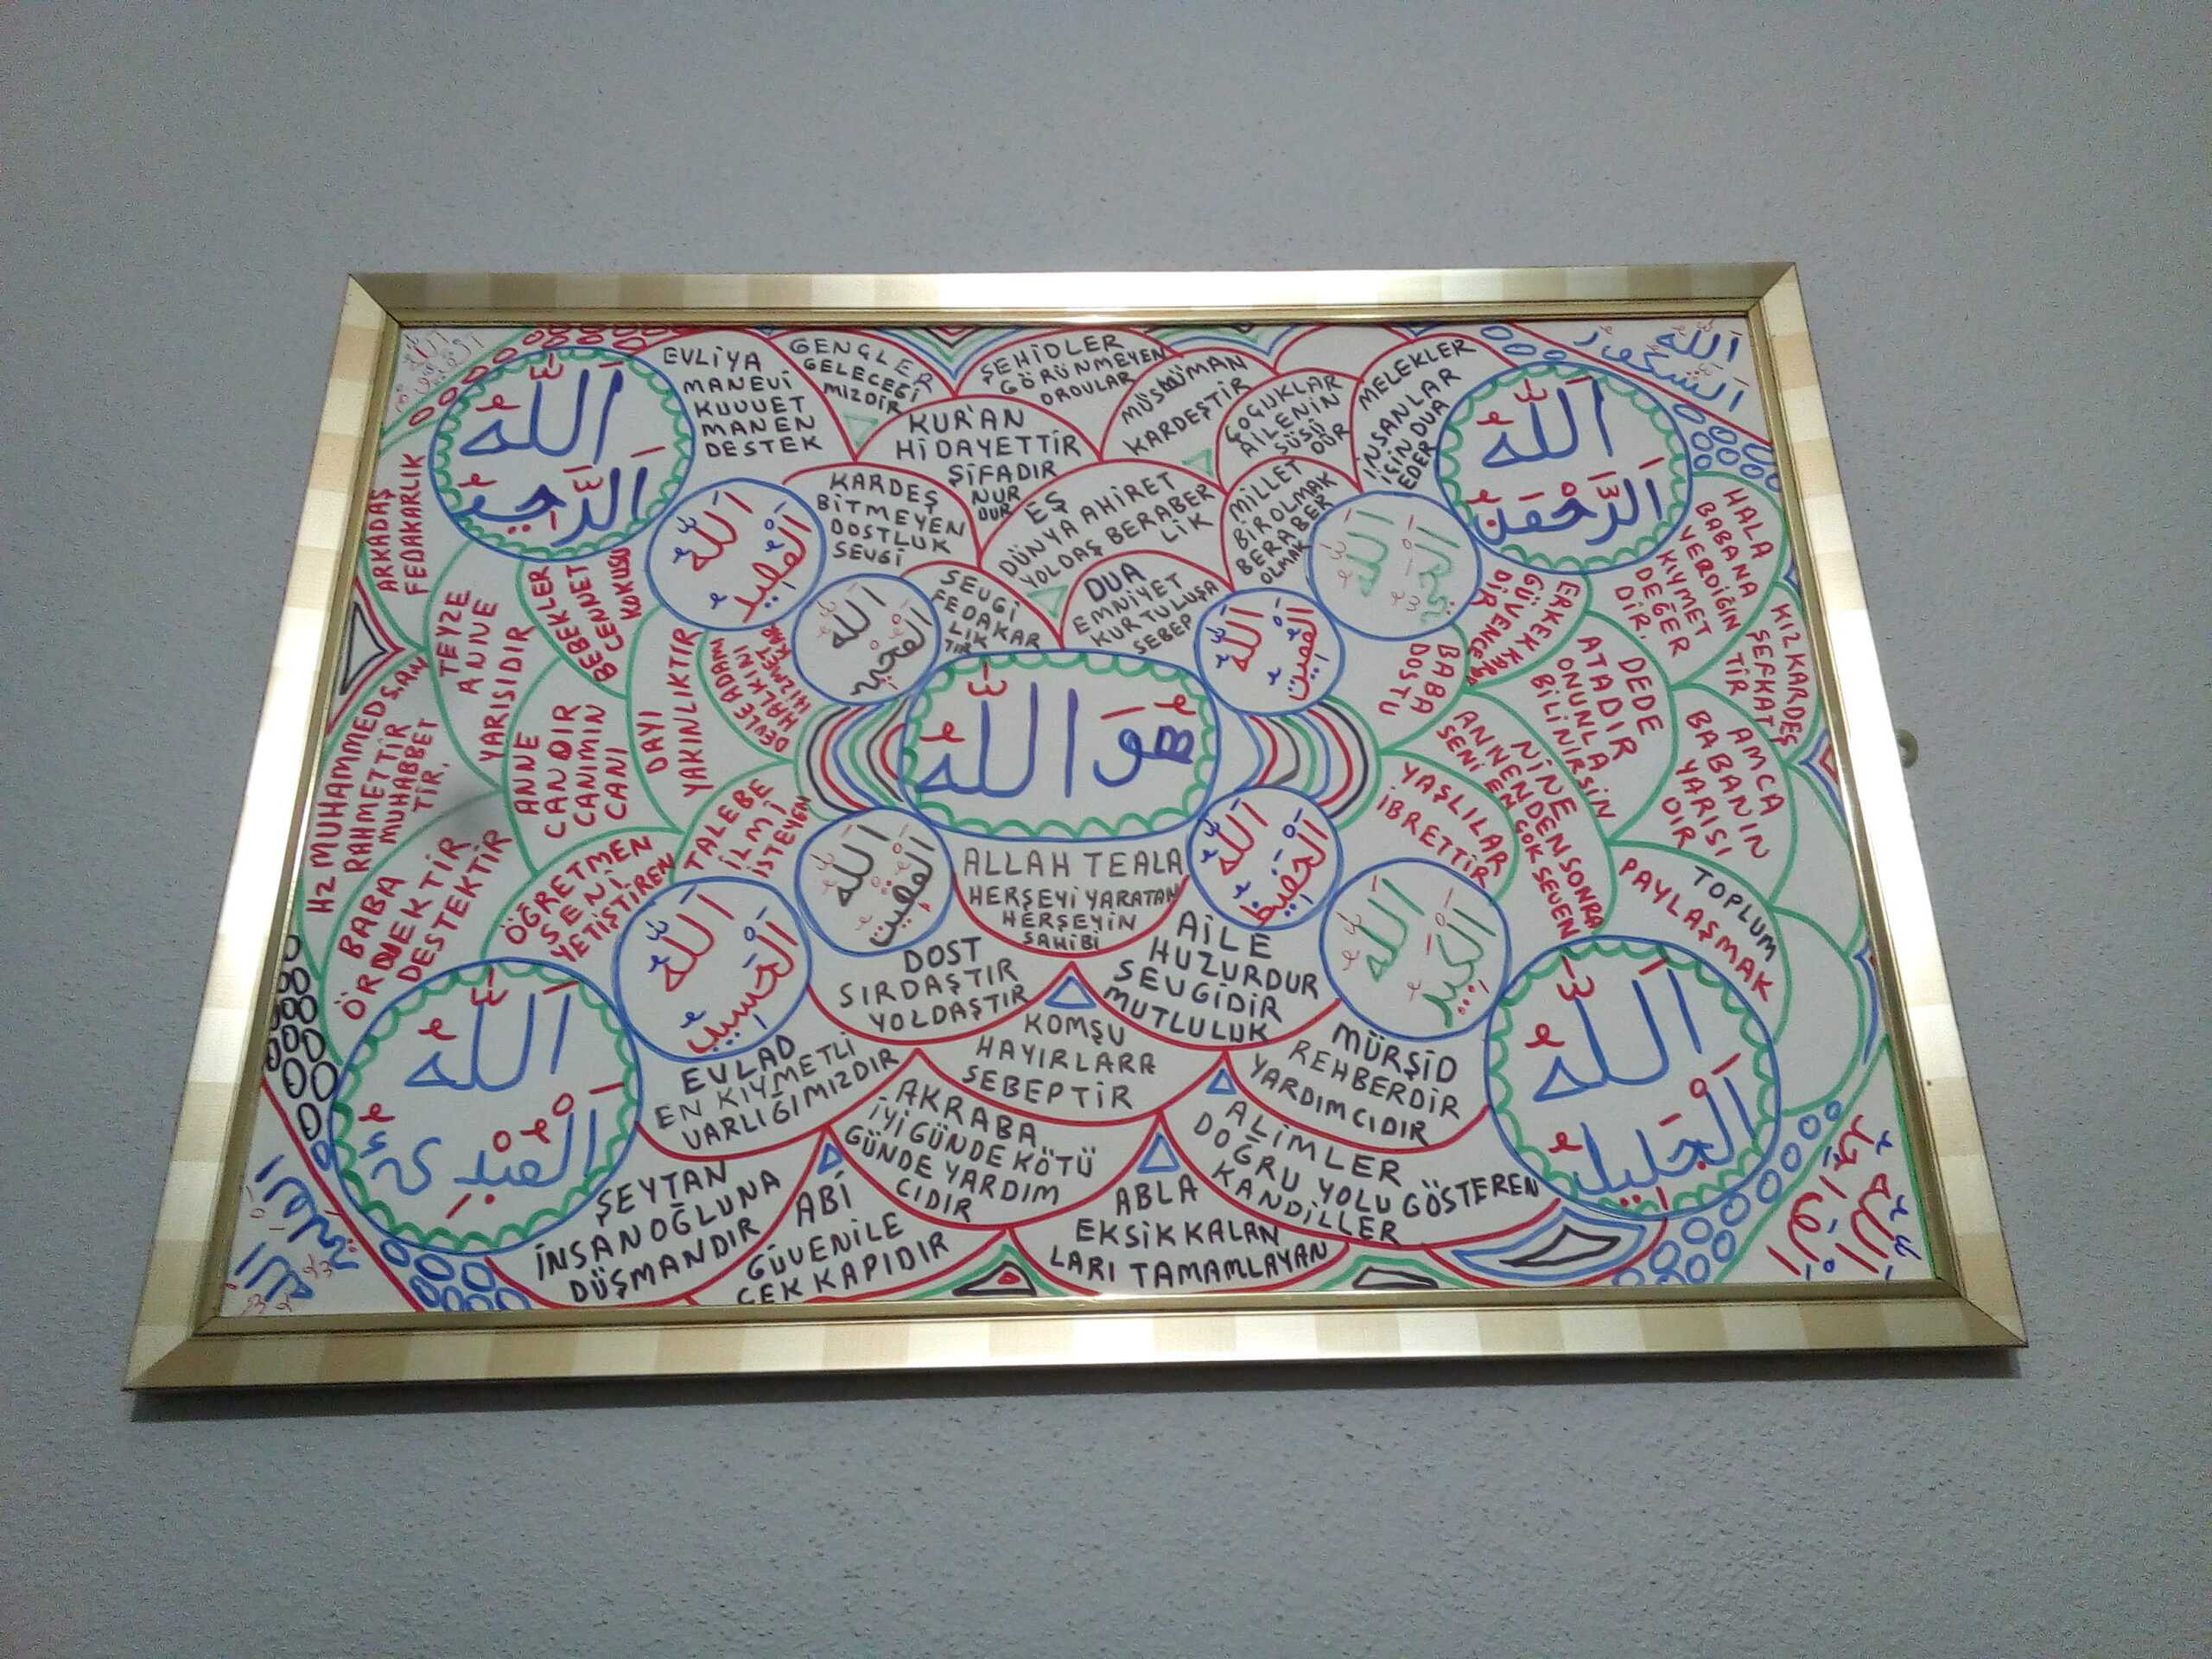 EVLİYA
MANEVİ
KUVVET
MANEN
DESTEK
GENÇLER
GELECEĞİ
MIZDIR
ŞEHİDLER
GÖRÜNMEYEN
ORDULAR
MÜSLÜMAN
KARDEŞTİR
ÇOÇUKLAR
AİLENİN
SÜSÜ
DÜR
MELEKLER
İNSANLAR
İÇİN DUA
EDER
الله
الشكور
الله
الرحيم
الله
الرحمن
KUR'AN
HİDAYETTİR
ŞİFADIR
NUR
DUR
KARDEŞ
BİTMEYEN
DOSTLUK
SEVGİ
EŞ
DÜNYA AHİRET
YOLDAŞ BERABER
LİK
MİLLET
BİR OLMAK
BERABER
OLMAK
SEVGİ
FEDAKAR
LIK
TIR
DUA
EMNİYET
KURTULUŞA
SEBEP
الله
الله
المجيب
الله
المقيت
الله
ARKADAŞ
FEDAKARLIK
TEYZE
ANNE
YARISIDIR
BEBEKLER
CENNET
KOKUSU
DEVLE ADAMI
HALKINI
HİZMET
DAYI
YAKINLIKTIR
ANNE
CANDIR
CANIMIN
CANI
HZ MUHAMMED S.A.V
RAHMETTİR
MUHABBET
TİR.
BABA
ÖRNEKTİR
DESTEKTİR
ÖĞRETMEN
SENİ
YETİŞTİREN
TALEBE
İLMİ
İSTEYEN
هو الله
HALA
BABANA
VERDİĞİN
KIYMET
DEĞER
DİR.
KIZ KARDEŞ
ŞEFKAT
TİR
ERKEK KARDEŞ
GÜVENCE
DİR
BABA
DOSTU
DEDE
ATADIR
ONUNLA
BİLİNİRSİN
AMCA
BABANIN
YARISI
DIR
NİNE
ANNENDEN SONRA
SENİ EN ÇOK SEVEN
YAŞLILAR
İBRETTİR
TOPLUM
PAYLAŞMAK
الله
المقيت
الله
الحفيظ
الله
الحسيب
الله
الكبير
ALLAH TEALA
HERŞEYİ YARATAN
HERŞEYİN
SAHİBİ
DOST
SIRDAŞTIR
YOLDAŞTIR
AİLE
HUZURDUR
SEVGİDİR
MUTLULUK
KOMŞU
HAYIRLARA
SEBEPTİR
EVLAD
EN KIYMETLİ
VARLIĞIMIZDIR
MÜRŞİD
REHBERDİR
YARDIMCIDIR
الله
الله
الجليل
AKRABA
İYİ GÜNDE KÖTÜ
GÜNDE YARDIM
CIDIR
ALİMLER
DOĞRU YOLU GÖSTEREN
KANDİLLER
ŞEYTAN
İNSANOĞLUNA
DÜŞMANDIR
ABİ
GÜVENİLE
CEK KAPIDIR
ABLA
EKSİK KALAN
LARI TAMAMLAYAN